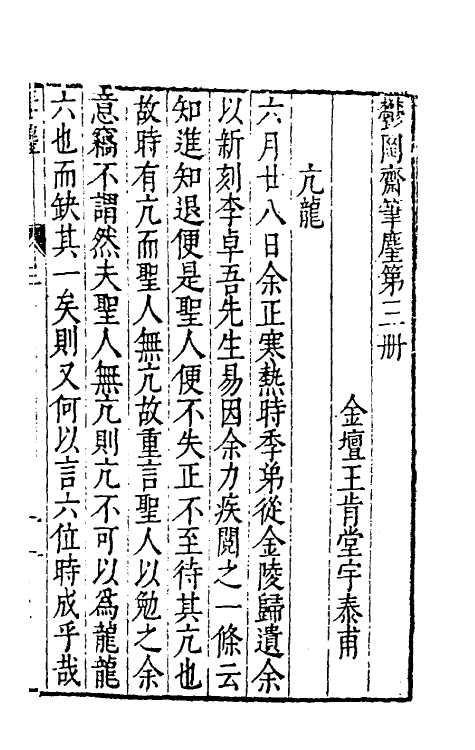 鬱岡齋筆麈第三册
金壇王肯堂宇泰甫
亢龍
六月廿八日余正寒熱時季弟從金陵歸遺余
以新刻李卓吾先生易因余力疾閱之一條云
知進知退便是聖人便不失正不至待其亢也
故時有亢而聖人無亢故重言聖人以勉之余
意竊不謂然夫聖人無亢則亢不可以爲龍龍
六也而缺其一矣則又何以言六位時成乎哉